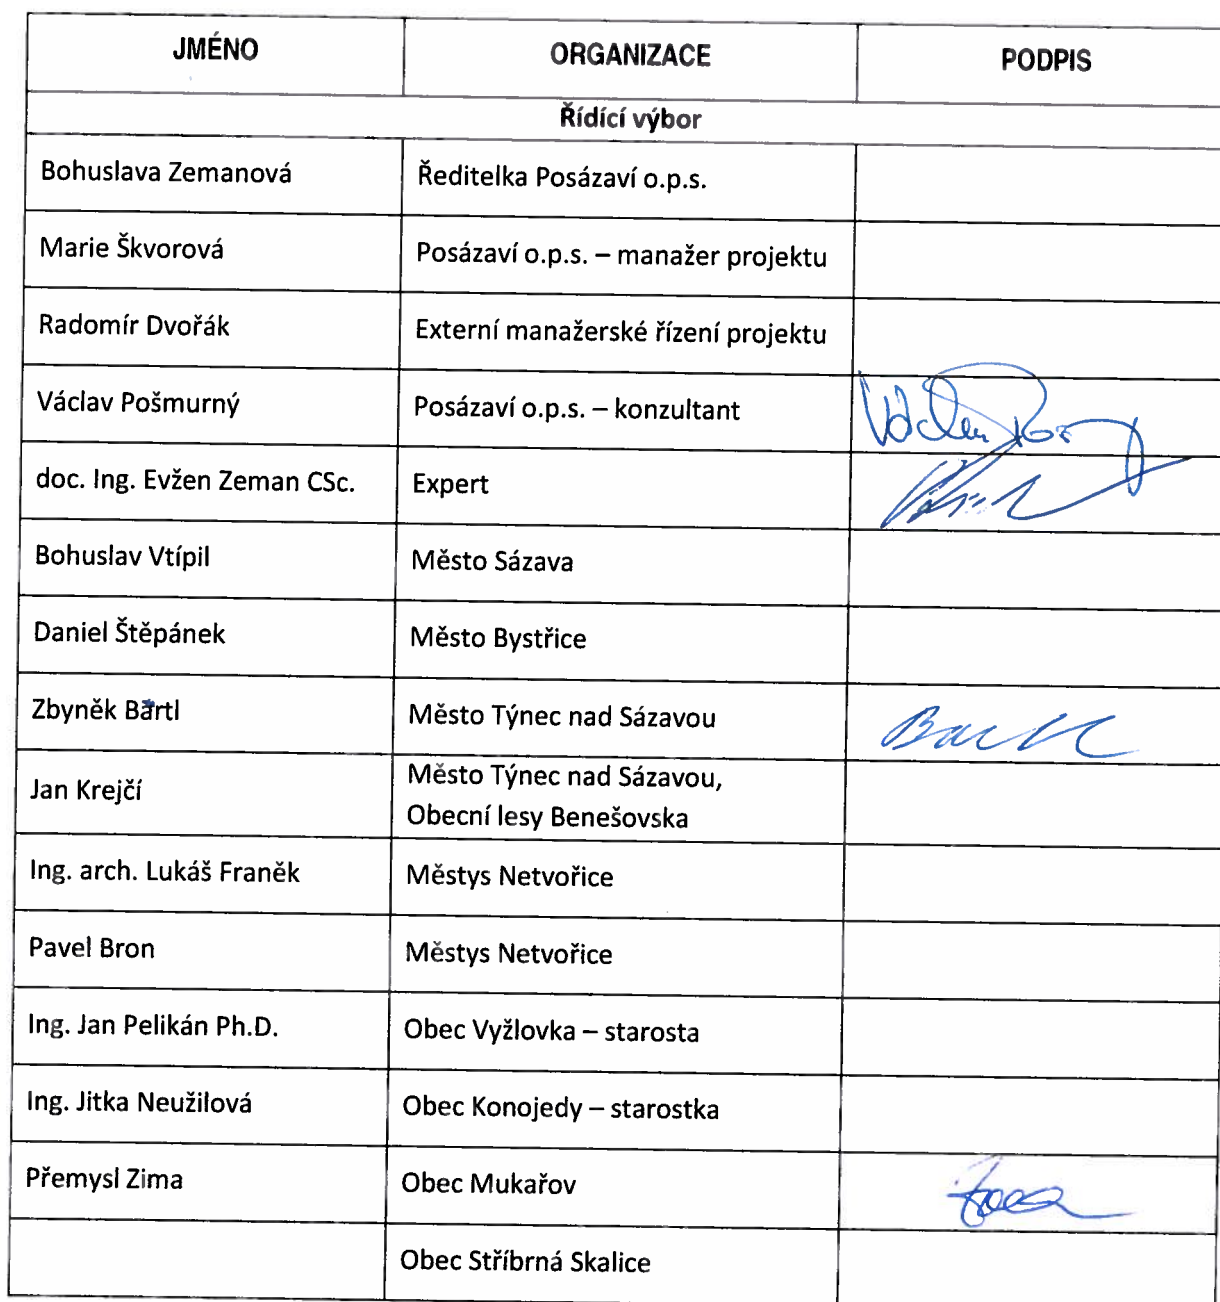 JMÉNO ORGANIZACE PODPIS
Řídící výbor
Bohuslava Zemanová Ředitelka Posázaví o.p.s.
Marie Škvorová Posázaví o.p.s. – manažer projektu
Radomír Dvořák Externí manažerské řízení projektu
Václav Pošmurný Posázaví o.p.s. – konzultant
doc. Ing. Evžen Zeman CSc. Expert
Bohuslav Vtípil Město Sázava
Daniel Štěpánek Město Bystřice
Zbyněk Bartl Město Týnec nad Sázavou
Jan Krejčí Město Týnec nad Sázavou,
Obecní lesy Benešovska
Ing. arch. Lukáš Franěk Městys Netvořice
Pavel Bron Městys Netvořice
Ing. Jan Pelikán Ph.D. Obec Vyžlovka – starosta
Ing. Jitka Neužilová Obec Konojedy – starostka
Přemysl Zima Obec Mukařov
Obec Stříbrná Skalice